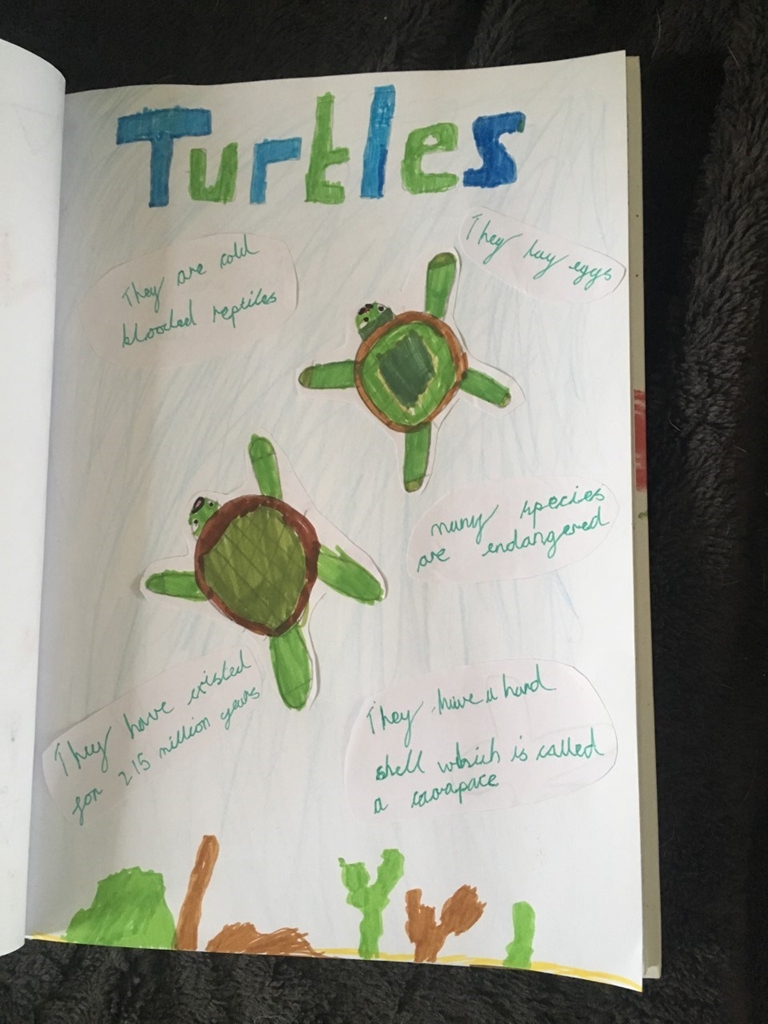 Turtles
They are cold
blooded reptiles
They lay eggs
many species
are endangered
They have existed
for 215 million years
They have a hard
shell which is called
a carapace